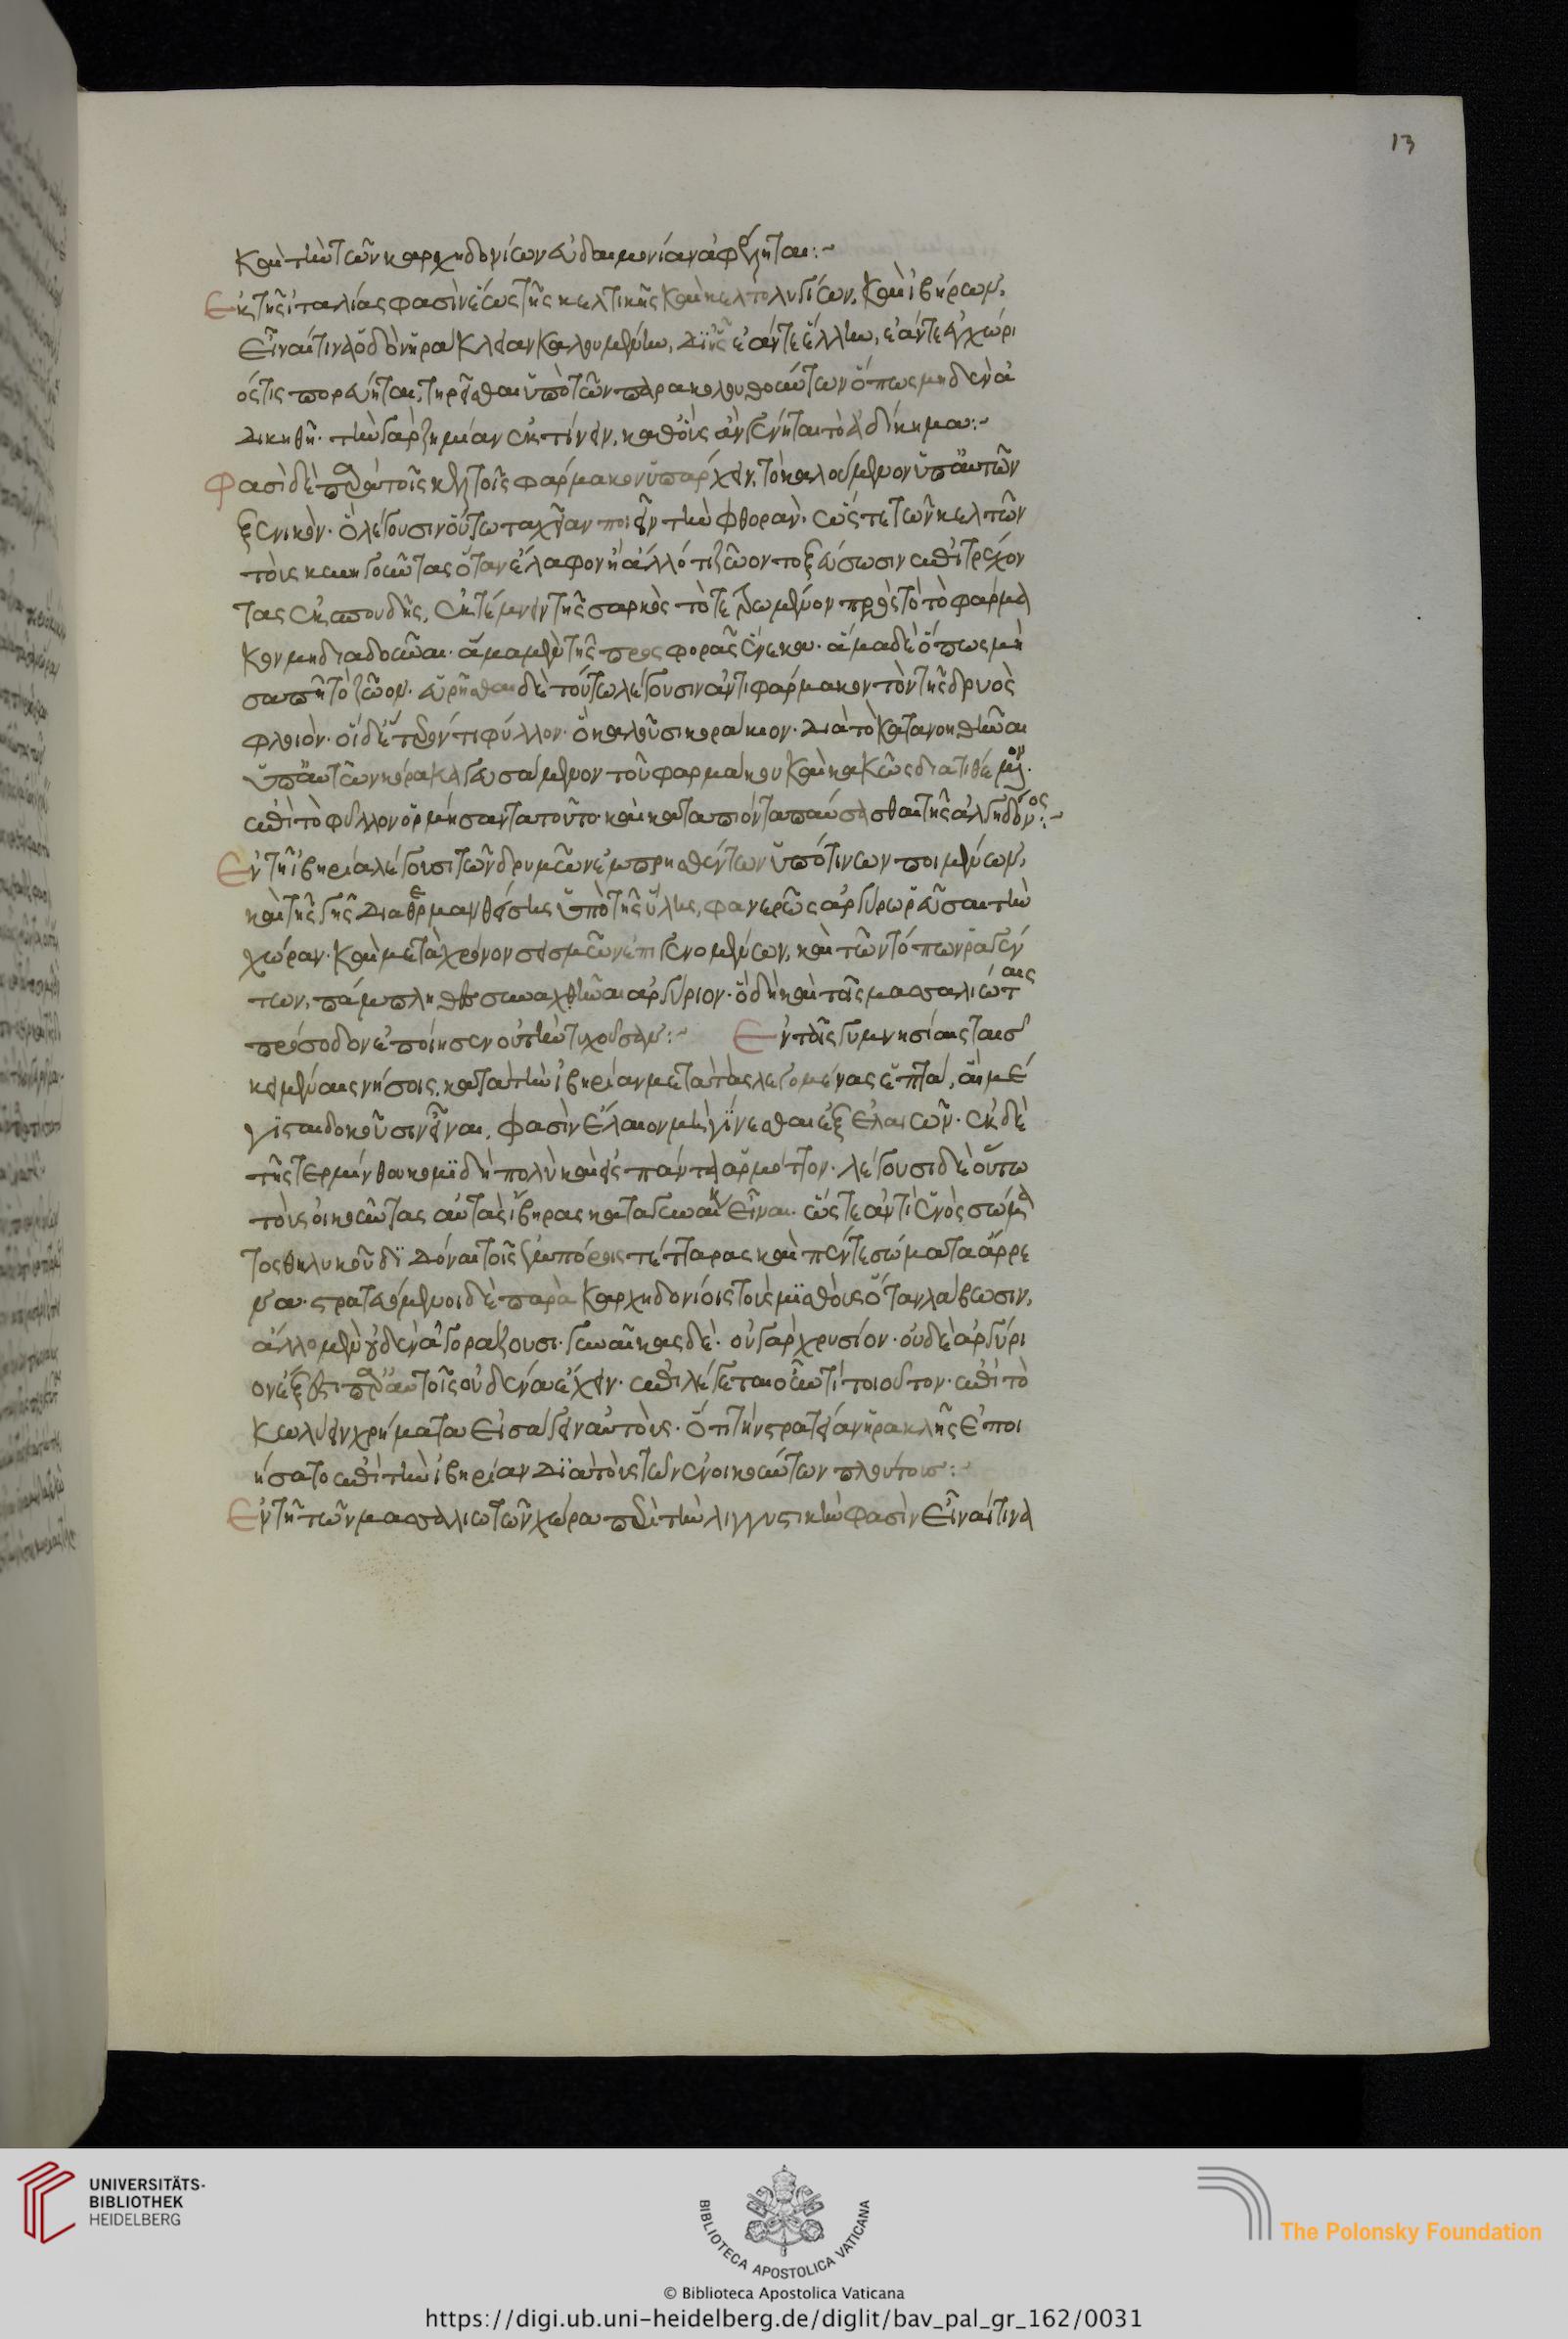 13
καὶ τὴν τῶν καρχηδονίων εὐδαιμονίαν ἀφέληται:~
Ἐκ τῆς ἰταλίας φασὶν ἕως τῆς κελτικῆς καὶ κελτολυγίων, καὶ ἰβήρων,
εἶναί τινα ὁδὸν ἡράκλειαν καλουμένην, δι' ἧς ἐάν τε ἕλλην, ἐάν τε ἐγχώρι
ός τις πορεύηται, τηρεῖσθαι ὑπὸ τῶν παρακολουθούντων ὅπως μηδὲν ἀ
δικηθῆ· τὴν γὰρ ζημίαν ἐκτίνειν, καθ' οἷς ἂν γένηται τὸ ἀδίκημα:~
Φασὶ δὲ παρὰ τοῖς κελτοῖς φάρμακον ὑπάρχειν, τὸ καλούμενον ὑπ' αὐτῶν
ξενικὸν· ὃ λέγουσιν οὕτω ταχεῖαν ποιεῖν τὴν φθορὰν· ὥς τε τῶν κελτῶν
τοὺς κυνηγοῦντας ὅταν ἔλαφον ἢ ἄλλό τι ζῶον τοξεύσωσιν ἐπιτρέχον
τας ἐκ σπουδῆς, ἐκτέμνειν τῆς σαρκὸς τὸ τετρωμένον πρὸς τὸ τὸ φάρμα
κον μὴ διαδοῦναι· ἅμα μὲν τῆς προσφορᾶς ἕνεκα· ἅμα δὲ ὅπως μὴ
σαπῆ τὸ ζῶον· εὑρῆσθαι δὲ τούτω λέγουσιν ἀντιφάρμακον τὸν τῆς δρυὸς
φλοιόν· οἱ δ' ἕτερόν τι φύλλον· ὃ καλοῦσι κοράκιον· διὰ τὸ κατανοηθῆναι
ὑπ' αὐτῶν κόρακα γευσάμενον τοῦ φαρμάκου καὶ κακῶς διατιθέμενον·
ἐπὶ τὸ φύλλον ὁρμήσαντα τοῦτο· καὶ καταπιόντα παύσασθαι τῆς ἀλγηδόνος:~
Ἐν τῆ ἰβηρία λέγουσι τῶν δρυμῶν ἐμπρησθέντων ὑπό τινων ποιμένων,
καὶ τῆς γῆς διαθερμανθείσης ὑπὸ τῆς ὕλης, φανερῶς ἀργύρω ῥεῦσαι τὴν
χώραν· καὶ μετὰ χρόνον σεισμῶν ἐπιγενομένων, καὶ τῶν τόπων ῥαγέν
των, πάμπληθες συναχθῆναι ἀργύριον· ὃ δὴ καὶ τοῖς μασσαλιώταις
πρόσοδον ἐποίησεν οὐ τὴν τυχοῦσαν:~ Ἐν ταῖς γυμνησίαις ταῖς
κειμέναις νήσοις, κατὰ τὴν ἰβηρίαν μετὰ τὰς λεγομένας ἑπτά, αἳ μέ
γισται δοκοῦσιν εἶναι, φασὶν ἔλαιον μὴ γίνεσθαι ἐξ ἐλαιῶν· ἐκ δὲ
τῆς τερμίνθου κομιδῆ πολὺ καὶ εἰς πάντα ἁρμόττον· λέγουσι δὲ οὕτω
τοὺς οἰκοῦντας αὐτὰς ἴβηρας καταγυναίκους εἶναι· ὥς τε ἀντὶ ἑνὸς σώμα
τος θηλυκοῦ διδόναι τοῖς ἐμπόροις τέτταρας καὶ πέντε σώματα ἄρρε
να· στρατευόμενοι δὲ παρὰ καρχηδονίοις τοὺς μισθοὺς ὅταν λάβωσιν,
ἄλλο μὲν οὐδὲν ἀγοράζουσι· γυναῖκας δέ· οὐ γὰρ χρυσίον· οὐδὲ ἀργύρι
ον ἔξεστι παρ' αὐτοῖς οὐδένα ἔχειν· ἐπιλέγεται οὖν τι τοιοῦτον· ἐπὶ τὸ
κωλύειν χρήματα εἰσάγειν αὐτοὺς· ὅτι τὴν στρατείαν ἡρακλῆς ἐποι
ήσατο ἐπὶ τὴν ἰβηρίαν διὰ τοὺς τῶν ἐνοικούντων πλούτους:~
Ἐν τῆ τῶν μασσαλιωτῶν χώρα περὶ τὴν λιγγυστικὴν φασὶν εἶναί τινα
UNIVERSITÄTS-
BIBLIOTHEK
HEIDELBERG
BIBLIOTECA APOSTOLICA VATICANA
The Polonsky Foundation
© Biblioteca Apostolica Vaticana
https://digi.ub.uni-heidelberg.de/diglit/bav_pal_gr_162/0031